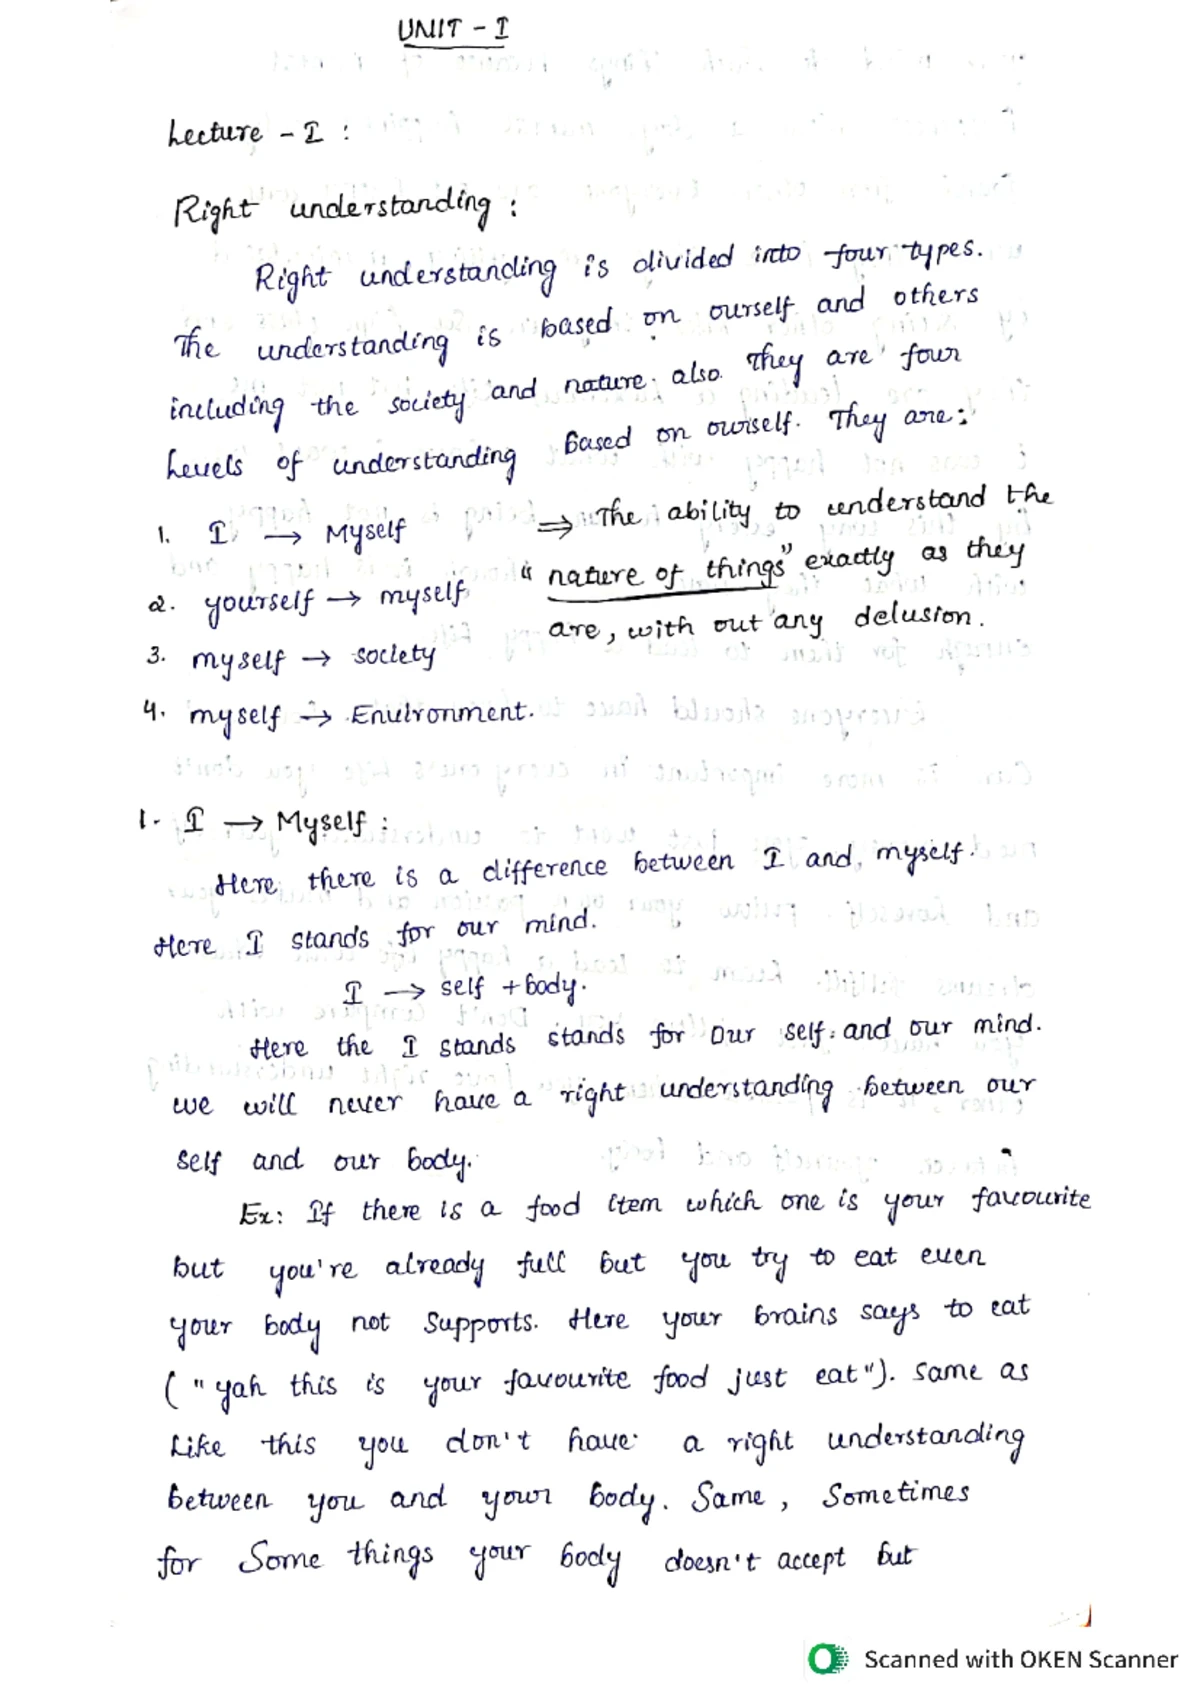 UNIT - I
Lecture - I :
Right understanding :
Right understanding is divided into four types.
The understanding is based on ourself and others
including the society and nature also. They are four
Levels of understanding based on ourself. They are:
1. I → Myself
2. yourself → myself
3. myself → society
4. myself → Environment.
⇒ The ability to understand the
"nature of things" exactly as they
are, with out any delusion.
1. I → Myself :
Here there is a difference between I and myself.
Here I stands for our mind.
I → self + body.
Here the I stands stands for Our self and our mind.
we will never have a right understanding between our
self and our body.
Ex: If there is a food item which one is your favourite
but you're already full but you try to eat even
your body not supports. Here your brains says to eat
("yah this is your favourite food just eat"). Same as
Like this you don't have a right understanding
between you and your body. Same, Sometimes
for Some things your body doesn't accept but
Scanned with OKEN Scanner